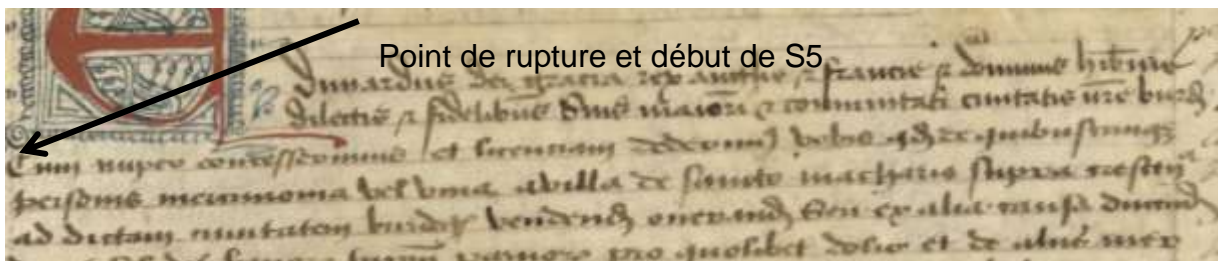 Point de rupture et début de S5
Edduuardus dei gracia rex anglie & francie & dominus hibnie
dilectis & fidelibus suis maiori & communitati ciuitatis nre burdeg
Cum nuper concesserimus et licenciam dederim vobis qd de quibuscumqz
personis vel vina a villa de sancto machario supra
ad dictam ciuitatem burdeg vendend onerand seu ex alia causa ducend
pro quolibet dolio et de aliis mer